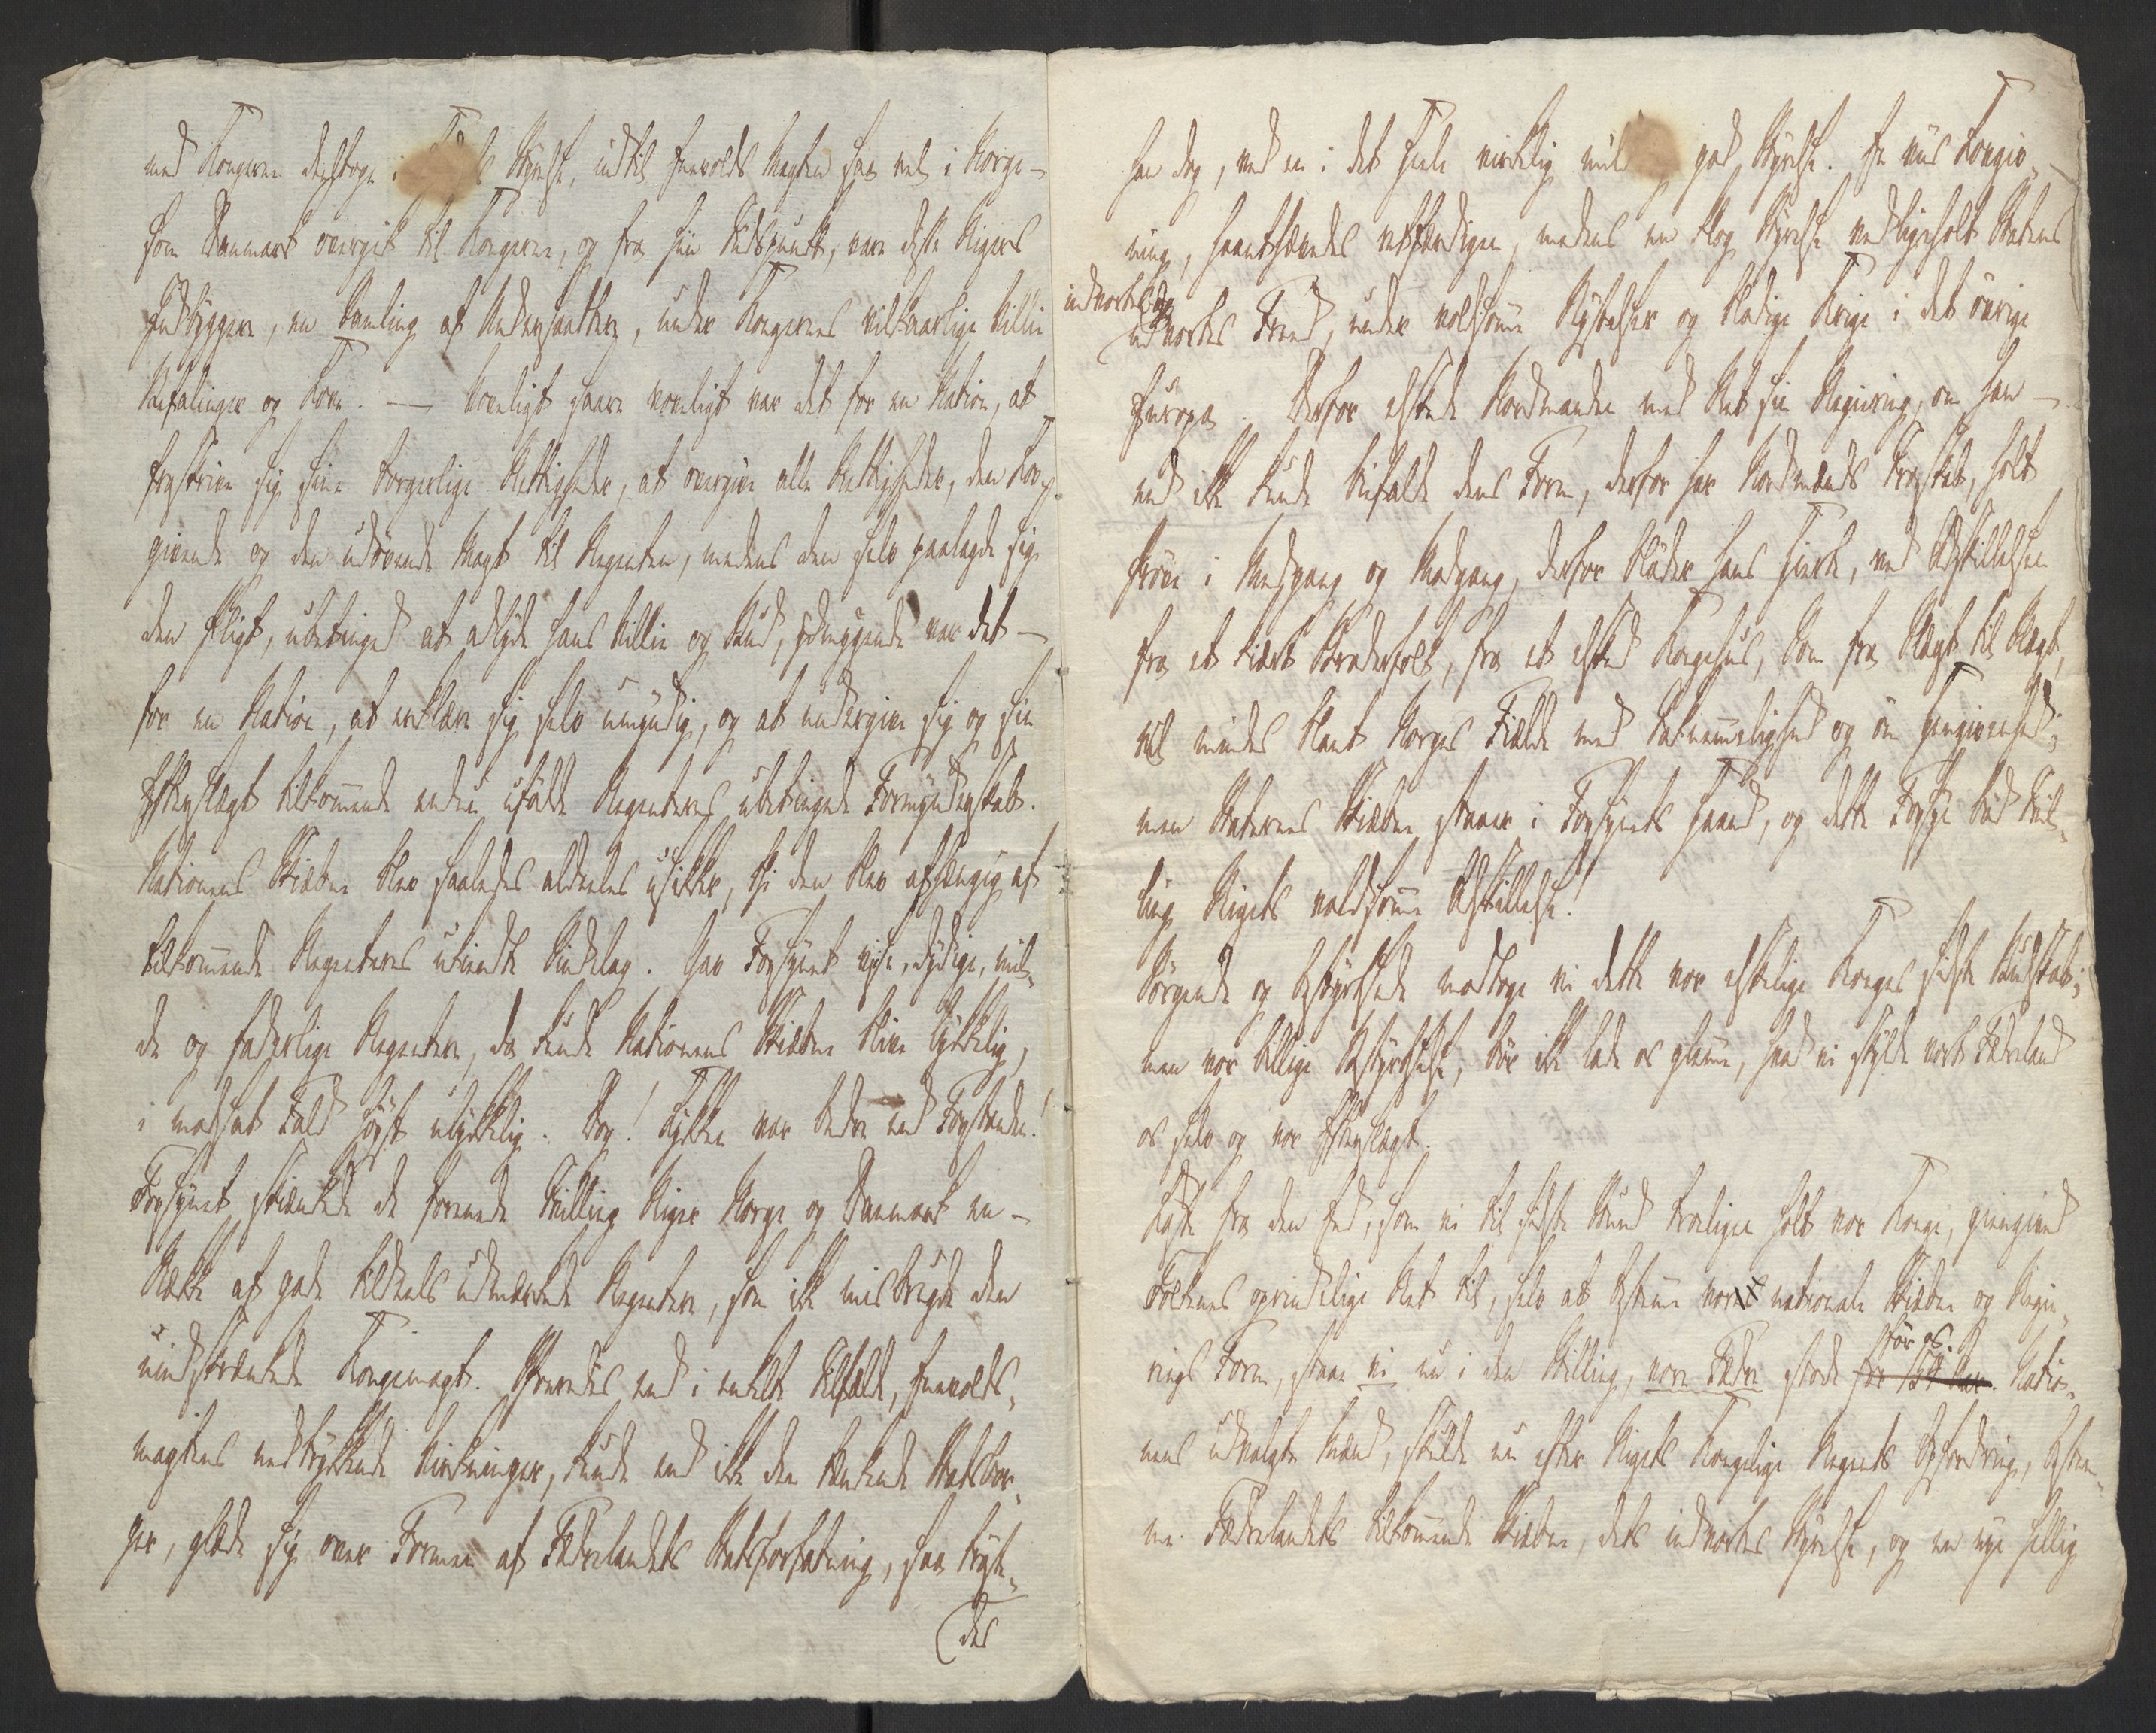 med Kongerne deeltoge i Rigets Styrelse, indtil Enevolds Magten saa vel i Norge –
som Danmark overgik til Kongerne, og fra hiin Tidspunkt, vare disse Rigers
Indbyggere, en Samling af Undersaatter, under Kongernes vilkaarlige Villie
Befalinger og Love. — Voveligt saare voveligt var det for en Nation, at
frasskrive sig sine borgerlige Rettigheder, at overgive alle Rettigheder, den Lov,,
givende og den udövende Magt til Regenten, medens den selv paalagde sig
den Pligt, ubetinget at adlyde hans Villie og Bud, ydmygende var det –
for en Nation, at erklære sig selv umyndig, og at undergive sig og sin
Efterslægt tilkommende endnu ufödte Regenteres ubetingede Formynderskab.
Nationens Skiæbne blev saaledes aldeeles usikker, thi den blev afhængig af
tilkommende Regenteres ukiendte Sindelag. Gav Forsynet viise, dydige, mil,,
de og faderlige Regentere, da kunde Nationens Skiæbne blive lykkelig,
i modsat Fald höyst ulykkelig. Dog! Lykken var bedre end Forstanden!
Forsynet skiænkede de forenede Tvilling Riger Norge og Danmark en –
Række af gode tildeels udmærkede Regentere, som ikke misbrugte den
uindskrænkede Kongemagt. Sporedes end i enkelte Tilfælde, Enevolds,,
magtens nedtrykkende Virkninger, kunde end ikke den tænkende Statsbor,,
ger, glæde sig over Formen af Fædrelandets Statsforfatning, saa tröste,,
des
han dog, ved en i det Hele virkelig mild god Styrelse. En viis Lovgiv,,
ning, haanthævedes retfærdigen, medens en klog Styrelse vedligeholdt Statens
indvortes og
udvortes Fred, under voldsomme Rystelser og blodige Krige i det övrige
Europa. Derfor elskede Nordmanden med Ret sin Regiering, om han –
end ikke kunde bifalde dens Form, derfor har Nordmands Troskab, holdt
Pröve i Medgang og Modgang, derfor blöder hans Hierte, ved Adskillelsen
fra et kiært Broderfolk, fra et elsket Kongehuus, som fra Slægt til Slægt,
vil mindes blant Norges Fielde med Taknemmelighed og öm Hengivenhed;
men Staternes Skiæbne staaer i Forsynets Haand, og dette Forsyn böd Tvil,,
ling Rigets voldsomme Adskillelse!
Sörgende og bestyrtsede modtoge vi dette vor elskelige Konges sidste Budskab;
men vor billige Bestyrtselse, bör ikke lade os glemme, hvad vi skylde vort Fædreland
os selv og vor Efterslægt.
Löste fra den Eed, som vi til sidste Stund troeligen holdt vor Konge, giengivet
Folkenes oprindelige Ret til, selv at bestemme vores nationale Skiæbne og Regie,,
rings Form, staae vi nu i den Stilling, vore Fædre stode för os. Natio,,
nens udvalgte Mænd, skulde nu efter Rigets Kongelige Regents Opfordring, bestem,,
me Fædrelandets tilkommende Skiæbne, dets indvortes Styrelse, og en nye hellig